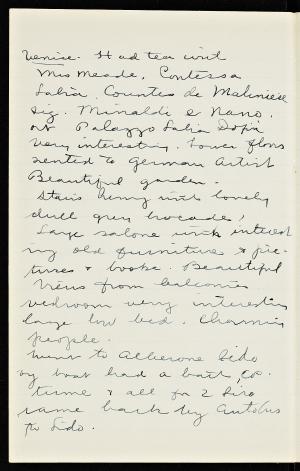 Venice. Had tea with
Miss Meade, Contessa
Labia, Countes de
Sig. Minaldi e Nano.
at Palazzo Labia
Very interesting. Lower floor
rented to German Artist
Beautiful garden.
Stairs hung with lovely
dull grey brocades!
Large salone with interest
ing old furniture & pic-
tures & books. Beautiful
views from balconies
bedroom very interesting
large low bed. Charming
people.
Went to Alberone Lido
by boat had a bath, cos-
tume & all for 2 Lira
came back by Autobus
to Lido.